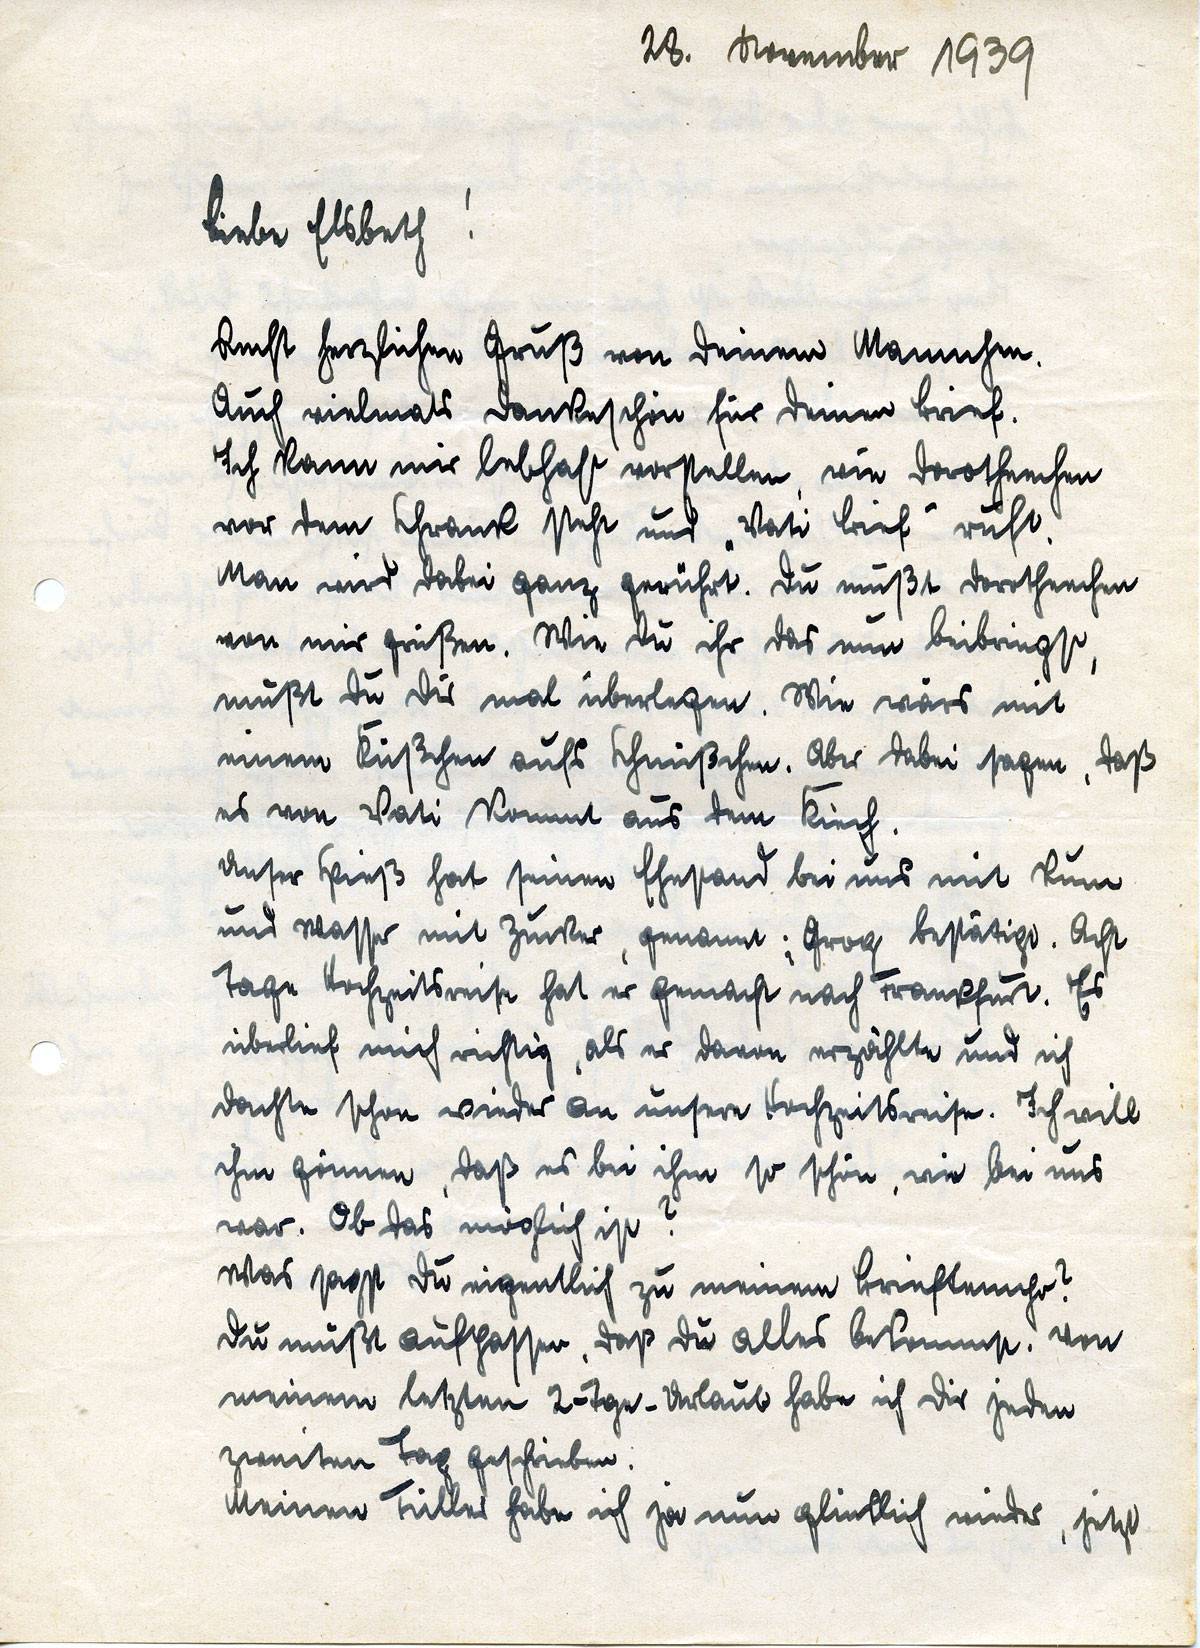 28. November 1939
Liebe Elsbeth!
Recht herzlichen Gruß von Deinem Mannchen.
Auch vielmals Dankeschön für Deinen Brief.
Ich kann mir lebhaft vorstellen, wie Dorotheechen
vor dem Schrank steht und „Vati Brief" ruft.
Man wird dabei ganz gerührt. Du mußt Dorotheechen
von mir grüßen. Wie Du ihr das nun beibringst,
mußt Du Dir mal überlegen. Wie wärs mit
einem Küßchen aufs Schnüßchen. Aber dabei sagen, daß
es von Vati kommt aus dem Kiech.
Unser Spieß hat seinen Ehestand bei uns mit Rum
und Wasser mit Zucker, genannt: Grog bestätigt. Acht
Tage Hochzeitsreise hat er gemacht nach Frankfurt. Es
überlief mich richtig, als er davon erzählte und ich
dachte schon wieder an unsere Hochzeitsreise. Ich will
ihm gönnen, daß es bei ihm so schön, wie bei uns
war. Ob das möglich ist?
Was sagst Du eigentlich zu meinem Brieftempo?
Du mußt aufpassen, daß Du alles bekommst. Von
meinem letzten 2-Tge-Urlaub habe ich Dir jeden
zweiten Tag geschrieben.
Meinen Füller habe ich ja nun glücklich wieder, jetzt